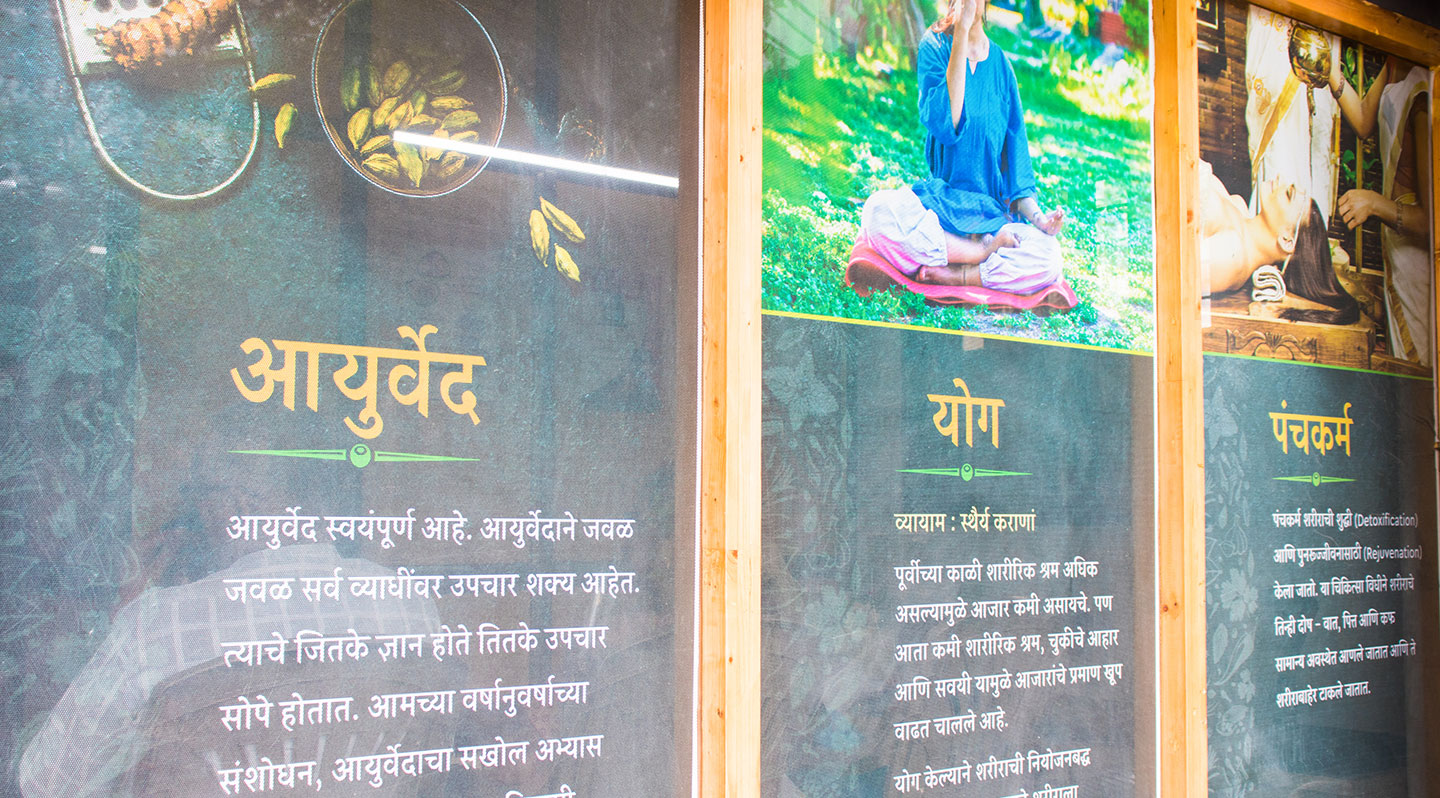 आयुर्वेद
आयुर्वेद स्वयंपूर्ण आहे. आयुर्वेदाने जवळ
जवळ सर्व व्याधींवर उपचार शक्य आहेत.
त्याचे जितके ज्ञान होते तितके उपचार
सोपे होतात. आमच्या वर्षानुवर्षाच्या
संशोधन, आयुर्वेदाचा सखोल अभ्यास
योग
व्यायाम : स्थैर्य कराणां
पूर्वीच्या काळी शारीरिक श्रम अधिक
असल्यामुळे आजार कमी असायचे. पण
आता कमी शारीरिक श्रम, चुकीचे आहार
आणि सवयी यामुळे आजारांचे प्रमाण खूप
वाढत चालले आहे.
योग केल्याने शरीराची नियोजनबद्ध
पंचकर्म
पंचकर्म शरीराची शुद्धी (Detoxification)
आणि पुनरूज्जीवनासाठी (Rejuvenation)
केला जातो. या चिकित्सा विधीने शरीराचे
तिन्ही दोष – वात, पित्त आणि कफ
सामान्य अवस्थेत आणले जातात आणि ते
शरीराबाहेर टाकले जातात.